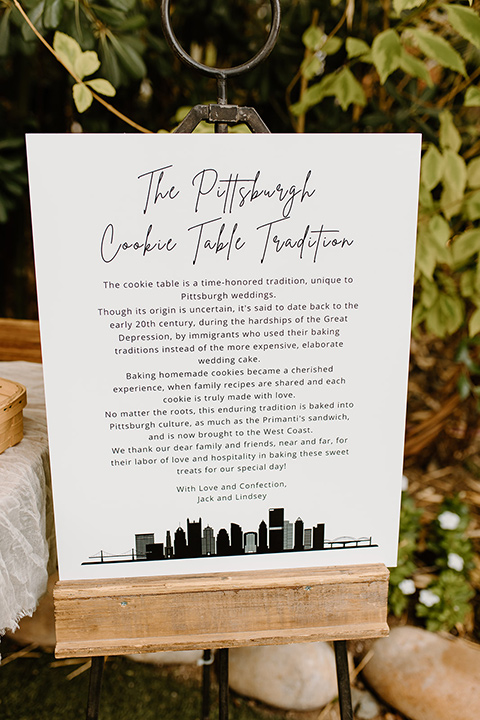 The Pittsburgh
Cookie Table Tradition
The cookie table is a time-honored tradition, unique to
Pittsburgh weddings.
Though its origin is uncertain, it's said to date back to the
early 20th century, during the hardships of the Great
Depression, by immigrants who used their baking
traditions instead of the more expensive, elaborate
wedding cake.
Baking homemade cookies became a cherished
experience, when family recipes are shared and each
cookie is truly made with love.
No matter the roots, this enduring tradition is baked into
Pittsburgh culture, as much as the Primanti's sandwich,
and is now brought to the West Coast.
We thank our dear family and friends, near and far, for
their labor of love and hospitality in baking these sweet
treats for our special day!
With Love and Confection,
Jack and Lindsey